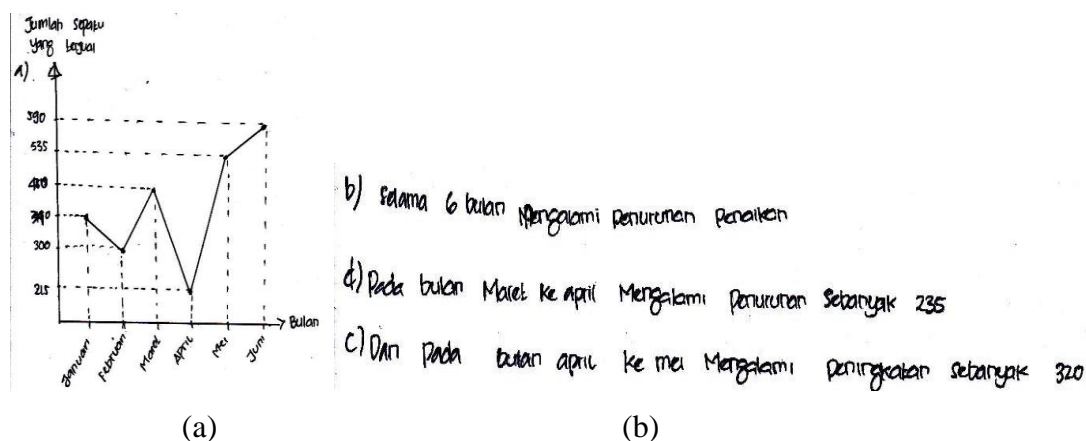 Jumlah sepatu
yang terjual
a)
590
535
300
215
Bulan
Januari
Februari
Maret
April
Mei
Juni
b) Selama 6 bulan Mengalami penurunan penaikan
d) Pada bulan Maret ke april Mengalami penurunan sebanyak 235
c) Dan pada bulan april ke mei Mengalami peningkatan sebanyak 320
(a)
(b)